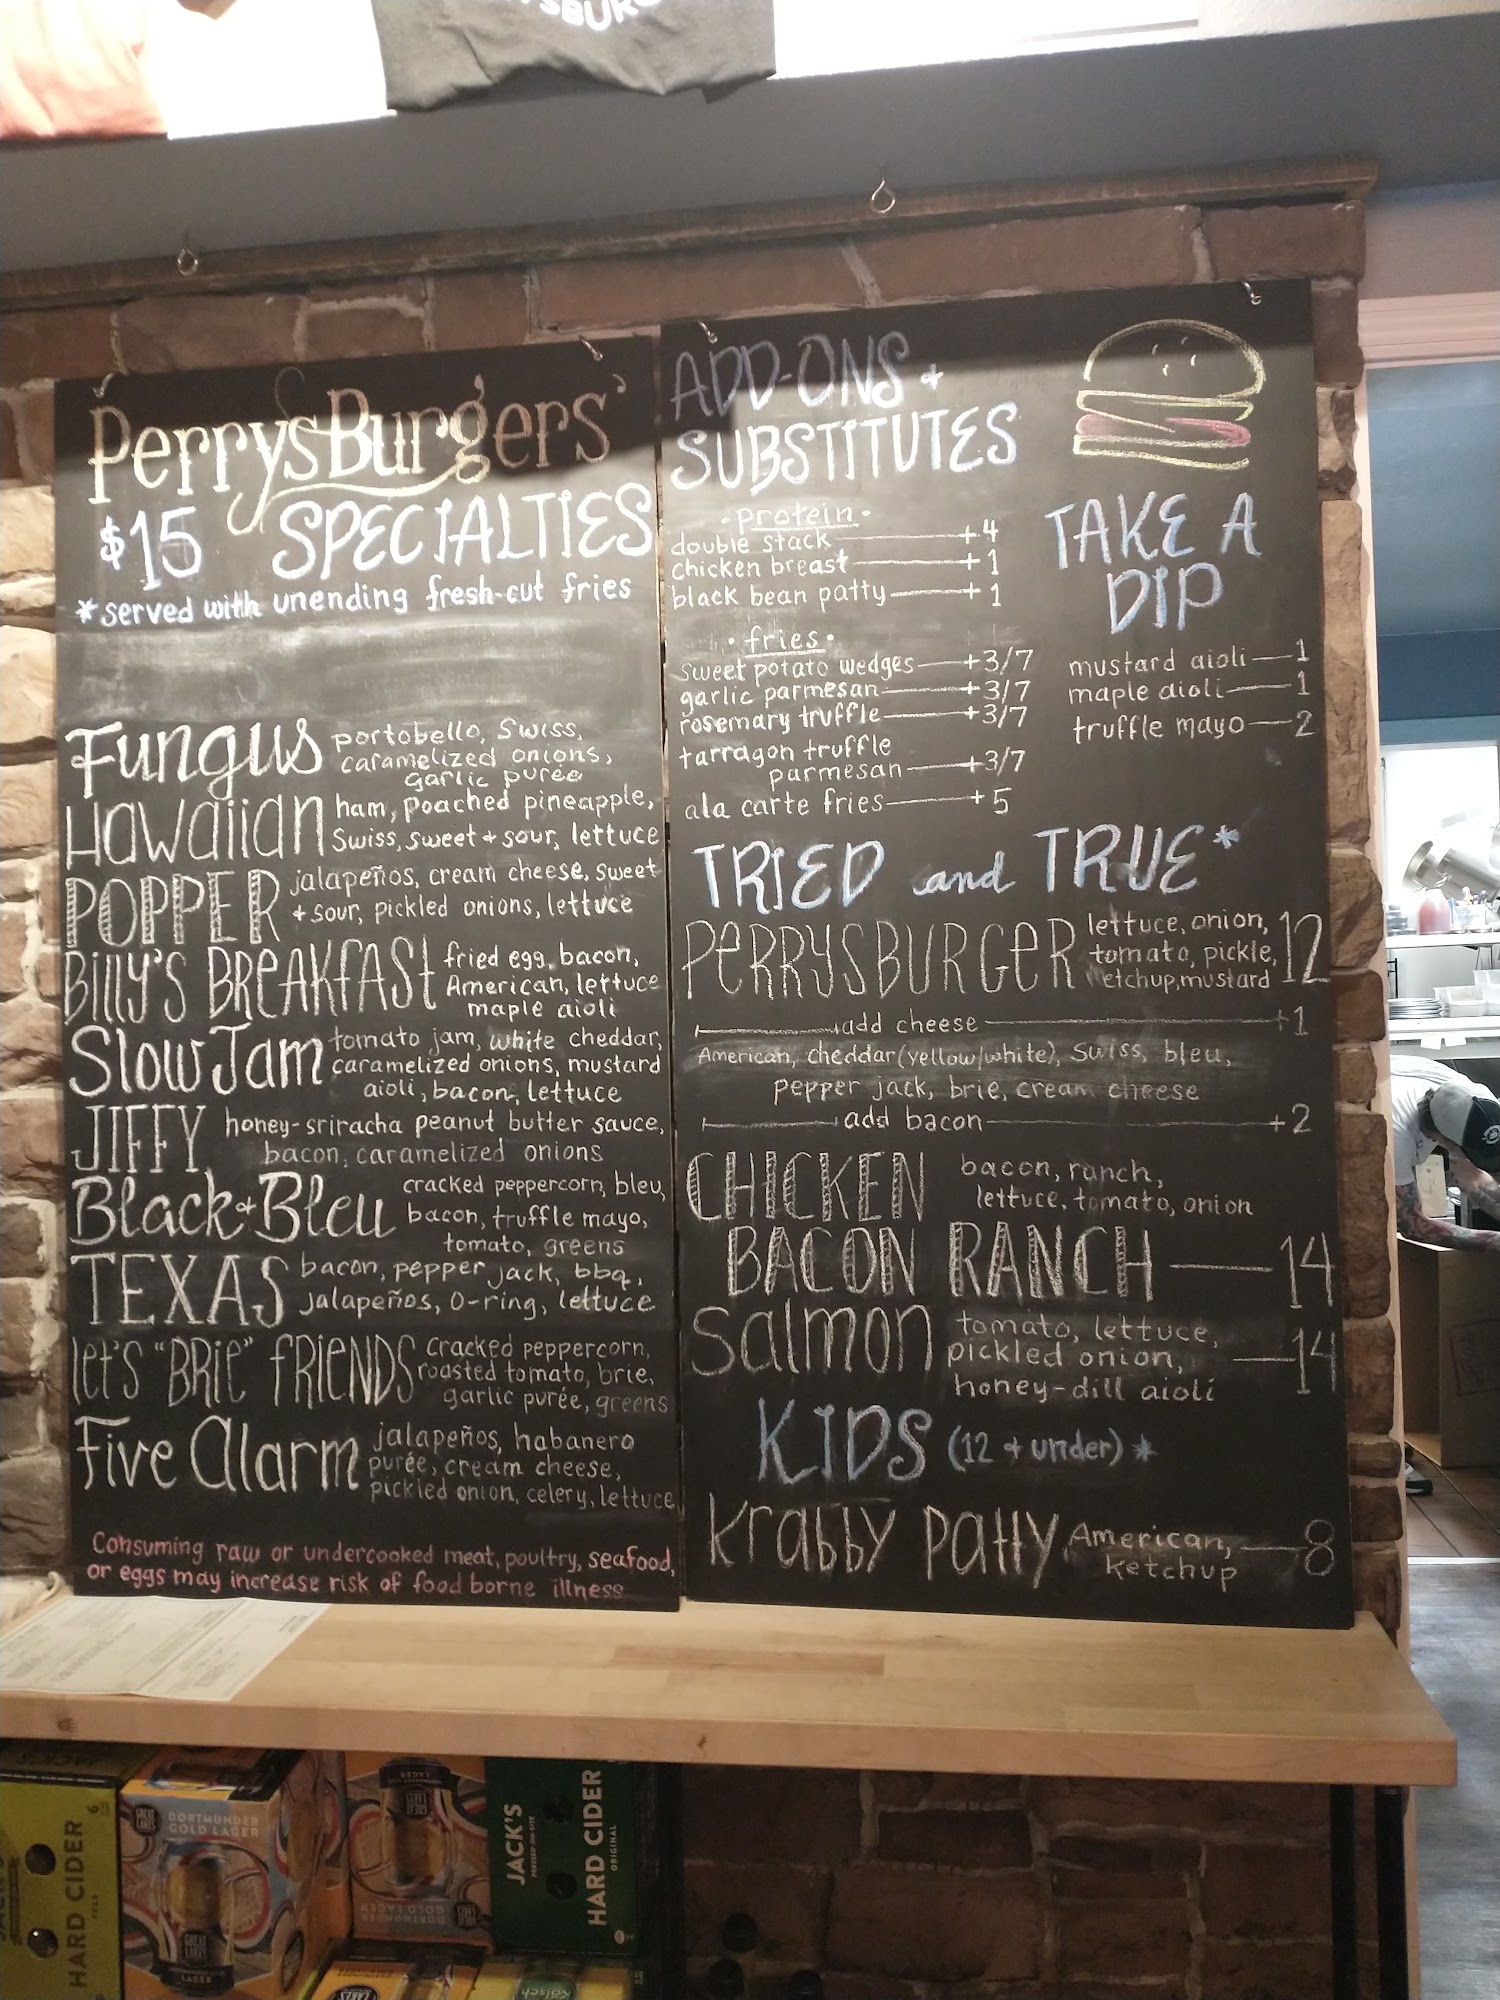 PerrysBurgers'
$15 SPECIALTIES
*served with unending fresh-cut fries
Fungus portobello, Swiss,
caramelized onions,
garlic purée
Hawaiian ham, poached pineapple,
Swiss, sweet + sour, lettuce
POPPER jalapeños, cream cheese, sweet
+ sour, pickled onions, lettuce
Billy's Breakfast fried egg, bacon,
American, lettuce
maple aioli
Slow Jam tomato jam, white cheddar,
caramelized onions, mustard
aioli, bacon, lettuce
JIFFY honey-sriracha peanut butter sauce,
bacon, caramelized onions
Black+Bleu cracked peppercorn, bleu,
bacon, truffle mayo,
tomato, greens
TEXAS bacon, pepper jack, bbq,
jalapeños, O-ring, lettuce
let's "BRIE" FRIENDS cracked peppercorn,
roasted tomato, brie,
garlic purée, greens
Five Alarm jalapeños, habanero
purée, cream cheese,
pickled onion, celery, lettuce
Consuming raw or undercooked meat, poultry, seafood,
or eggs may increase risk of food borne illness
ADD-ONS +
SUBSTITUTES
• protein •
double stack +4
chicken breast +1
black bean patty +1
• fries •
sweet potato wedges +3/7
garlic parmesan +3/7
rosemary truffle +3/7
tarragon truffle
parmesan +3/7
ala carte fries +5
TAKE A
DIP
mustard aioli 1
maple aioli 1
truffle mayo 2
TRIED and TRUE*
PERRYSBURGER lettuce, onion, 12
tomato, pickle,
ketchup, mustard
add cheese +1
American, cheddar(yellow/white), Swiss, bleu,
pepper jack, brie, cream cheese
add bacon +2
CHICKEN bacon, ranch,
lettuce, tomato, onion
BACON RANCH 14
Salmon tomato, lettuce,
pickled onion, 14
honey-dill aioli
KIDS (12 + under)*
Krabby Patty American, 8
Ketchup
HARD CIDER
DORTMUNDER
GOLD LAGER
GREAT
LAKES
LAGER
DORTMUNDER
GOLD LAGER
JACK'S
HARD CIDER
ORIGINAL
Kölsch